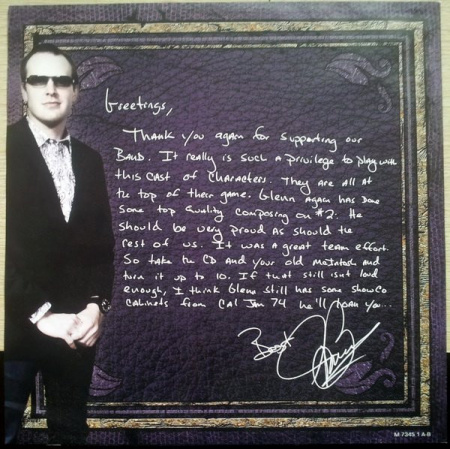 Greetings,
Thank you again for supporting our
Band. It really is such a privilege to play with
this cast of characters. They are all at
the top of their game. Glenn again has done
some top quality composing on #2. He
should be very proud as should the
rest of us. It was a great team effort.
So take the CD and your old McIntosh and
turn it up to 10. If that still isnt loud
enough, I think Glenn still has some showco
cabinets from Cal Jam 74 he'll loan you...
Best
M 7345 1 A-B